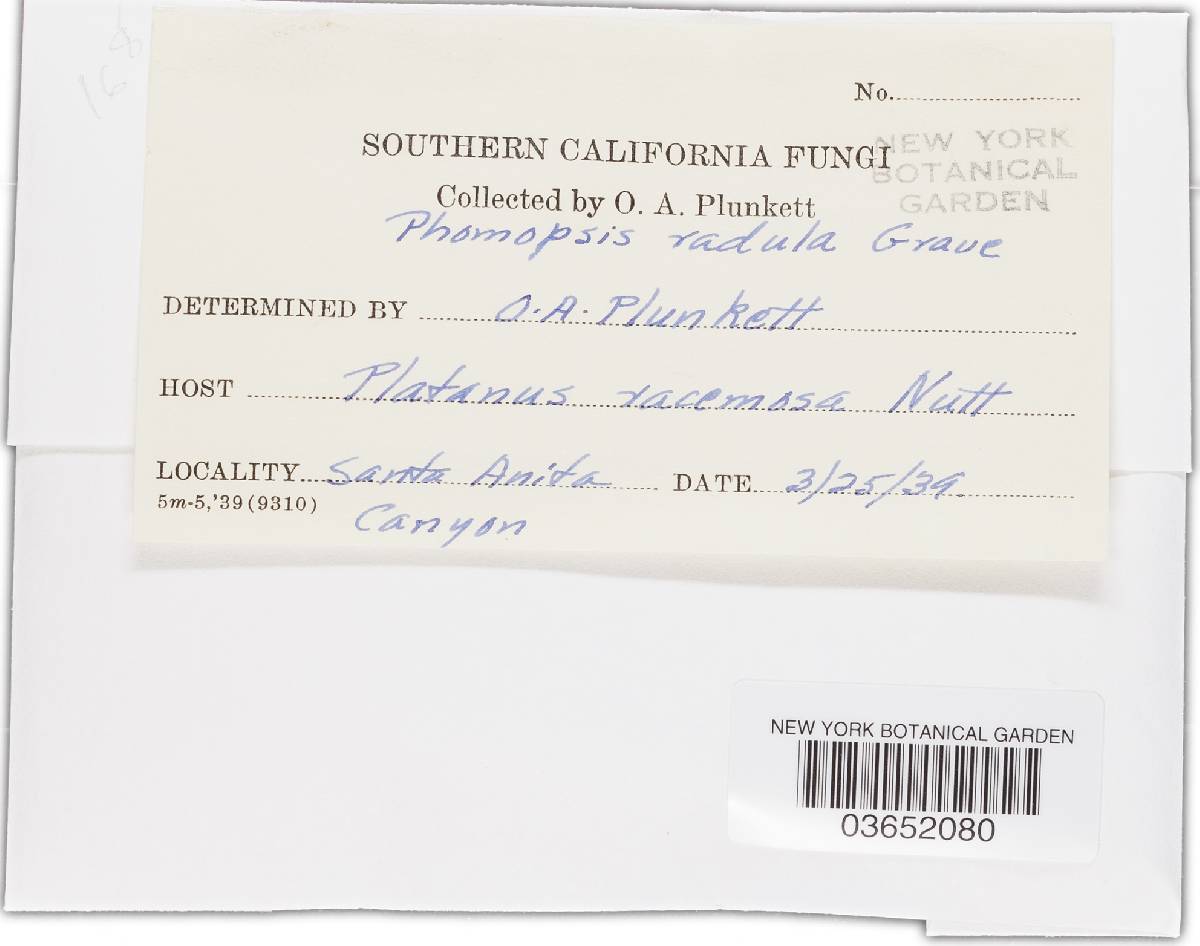 168
No.
SOUTHERN CALIFORNIA FUNGI
NEW YORK
BOTANICAL
GARDEN
Collected by O. A. Plunkett
Phomopsis radula Grave
DETERMINED BY O.A. Plunkett
HOST Platanus racemosa Nutt
LOCALITY Santa Anita DATE 3/25/39.
5m-5,'39(9310)
Canyon
NEW YORK BOTANICAL GARDEN
03652080